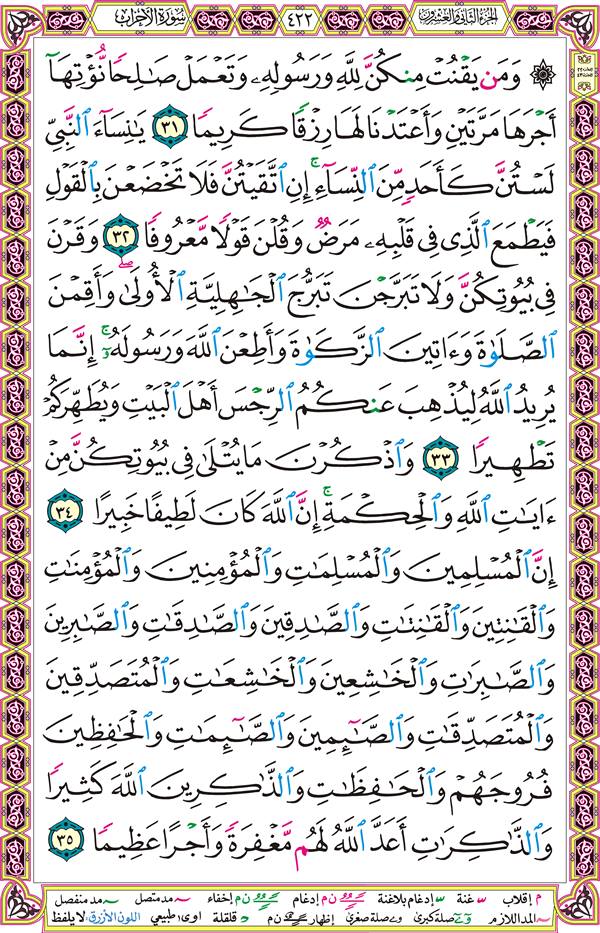 الجزء الثاني والعشرون ٤٢٢ سورة الأحزاب
۞ وَمَن يَقْنُتْ مِنكُنَّ لِلَّهِ وَرَسُولِهِۦ وَتَعْمَلْ صَـٰلِحًا نُّؤْتِهَآ
أَجْرَهَا مَرَّتَيْنِ وَأَعْتَدْنَا لَهَا رِزْقًا كَرِيمًا ٣١ يَـٰنِسَآءَ ٱلنَّبِىِّ
لَسْتُنَّ كَأَحَدٍ مِّنَ ٱلنِّسَآءِ ۚ إِنِ ٱتَّقَيْتُنَّ فَلَا تَخْضَعْنَ بِٱلْقَوْلِ
فَيَطْمَعَ ٱلَّذِى فِى قَلْبِهِۦ مَرَضٌ وَقُلْنَ قَوْلًا مَّعْرُوفًا ٣٢ وَقَرْنَ
فِى بُيُوتِكُنَّ وَلَا تَبَرَّجْنَ تَبَرُّجَ ٱلْجَـٰهِلِيَّةِ ٱلْأُولَىٰ ۖ وَأَقِمْنَ
ٱلصَّلَوٰةَ وَءَاتِينَ ٱلزَّكَوٰةَ وَأَطِعْنَ ٱللَّهَ وَرَسُولَهُۥٓ ۚ إِنَّمَا
يُرِيدُ ٱللَّهُ لِيُذْهِبَ عَنكُمُ ٱلرِّجْسَ أَهْلَ ٱلْبَيْتِ وَيُطَهِّرَكُمْ
تَطْهِيرًا ٣٣ وَٱذْكُرْنَ مَا يُتْلَىٰ فِى بُيُوتِكُنَّ مِنْ
ءَايَـٰتِ ٱللَّهِ وَٱلْحِكْمَةِ ۚ إِنَّ ٱللَّهَ كَانَ لَطِيفًا خَبِيرًا ٣٤
إِنَّ ٱلْمُسْلِمِينَ وَٱلْمُسْلِمَـٰتِ وَٱلْمُؤْمِنِينَ وَٱلْمُؤْمِنَـٰتِ
وَٱلْقَـٰنِتِينَ وَٱلْقَـٰنِتَـٰتِ وَٱلصَّـٰدِقِينَ وَٱلصَّـٰدِقَـٰتِ وَٱلصَّـٰبِرِينَ
وَٱلصَّـٰبِرَٰتِ وَٱلْخَـٰشِعِينَ وَٱلْخَـٰشِعَـٰتِ وَٱلْمُتَصَدِّقِينَ
وَٱلْمُتَصَدِّقَـٰتِ وَٱلصَّـٰٓئِمِينَ وَٱلصَّـٰٓئِمَـٰتِ وَٱلْحَـٰفِظِينَ
فُرُوجَهُمْ وَٱلْحَـٰفِظَـٰتِ وَٱلذَّٰكِرِينَ ٱللَّهَ كَثِيرًا
وَٱلذَّٰكِرَٰتِ أَعَدَّ ٱللَّهُ لَهُم مَّغْفِرَةً وَأَجْرًا عَظِيمًا ٣٥
م إقلاب غنة إدغام بلاغنة ن م إدغام ن م إخفاء مد متصل مد منفصل
المد اللازم صلة كبرى صلة صغرى إظهار ن م قلقلة اوى؛ طبيعي اللون الأزرق: لا يلفظ